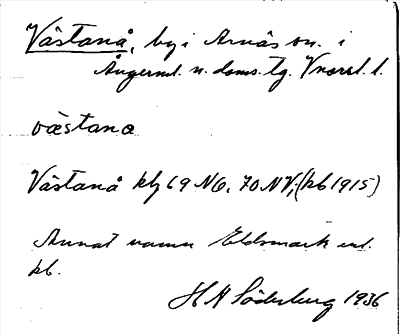 Västanå, by i Arnäs sn. i
Ångerml. n. doms. tg. Vnorrl. l.
västana
Västanå kbl 69 NO, 70 NV, (kb 1915)
Annat namn Eldsmark enl.
kb.
H N Söderberg 1936